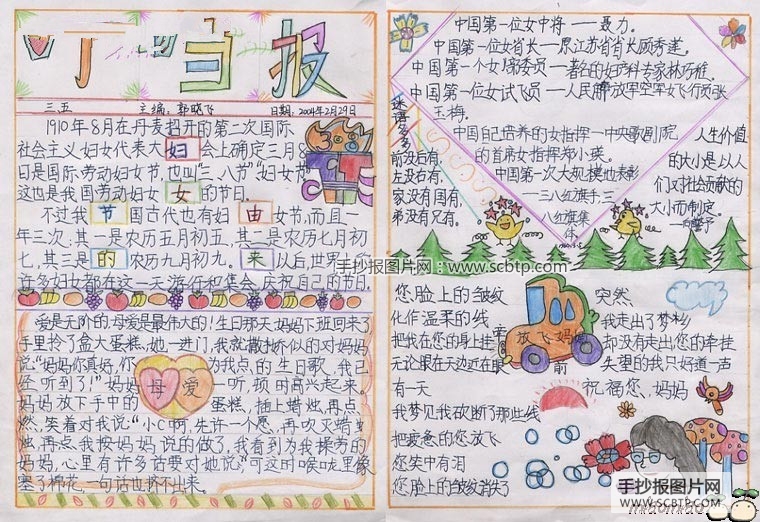 叮当报
三五 主编:郭晓飞 日期:2004年2月29日
1910年8月在丹麦招开的第二次国际
社会主义妇女代表大会上确定三月8
日是国际劳动妇女节,也叫"三八节"妇女节"
这也是我国劳动妇女的节日。
不过我国古代也有妇女节,而且一
年三次:其一是农历五月初五,其二是农历七月初
七,其三是农历九月初九。以后,世界
许多妇女都在这一天游行和集会,庆祝自己的节日.
妇
女
节
由
的
来
爱是无价的,母爱是最伟大的!生日那天,妈妈下班回来了
手里拎了盒大蛋糕,她一进门,我就撒娇似的对妈妈
说:"妈妈你真好,你为我点的,生日歌,我已
经听到了!"妈妈一听,顿时高兴起来。
妈妈放下手中的蛋糕,插上蜡烛,再点
燃,笑着对我说:"小C啊,先许一个愿,再吹灭蜡
烛,再点,我按妈妈说的做了,我看到为我操劳的
妈妈,心里有许多话要对她说,可这时喉咙里像
塞了棉花,一句话也挤不出来。
母爱
中国第一位女中将——聂力。
中国第一位女省长——原江苏省省长顾秀莲。
中国第一个女学部委员——著名的妇产科专家林巧稚。
中国第一位女试飞员——人民解放军空军女飞行员张
玉梅。
中国自己培养的女指挥——中央歌剧院
的首席女指挥郑小英。
中国第一次大规模地表彰
——三八红旗手,三
八红旗集
体。
谜语多多
前没后有,
左没右有,
家没有国有,
弟没有兄有。
人生价值
的大小是以人
们对社会贡献的
大小而制定。
——向警予
手抄报图片网:www.scbtp.com
您脸上的皱纹
化作温柔的线
把我在您的身上挂牵
无论眼在天边近在眼前
有一天
我梦见我砍断了那些线
把疲惫的您放飞
您笑中有泪
您脸上的皱纹消失了
放飞妈妈
突然,
我走出了梦乡
却没有走出您的牵挂
失望的我只好道一声
祝福您,妈妈
手抄报图片网
WWW.SCBTP.COM